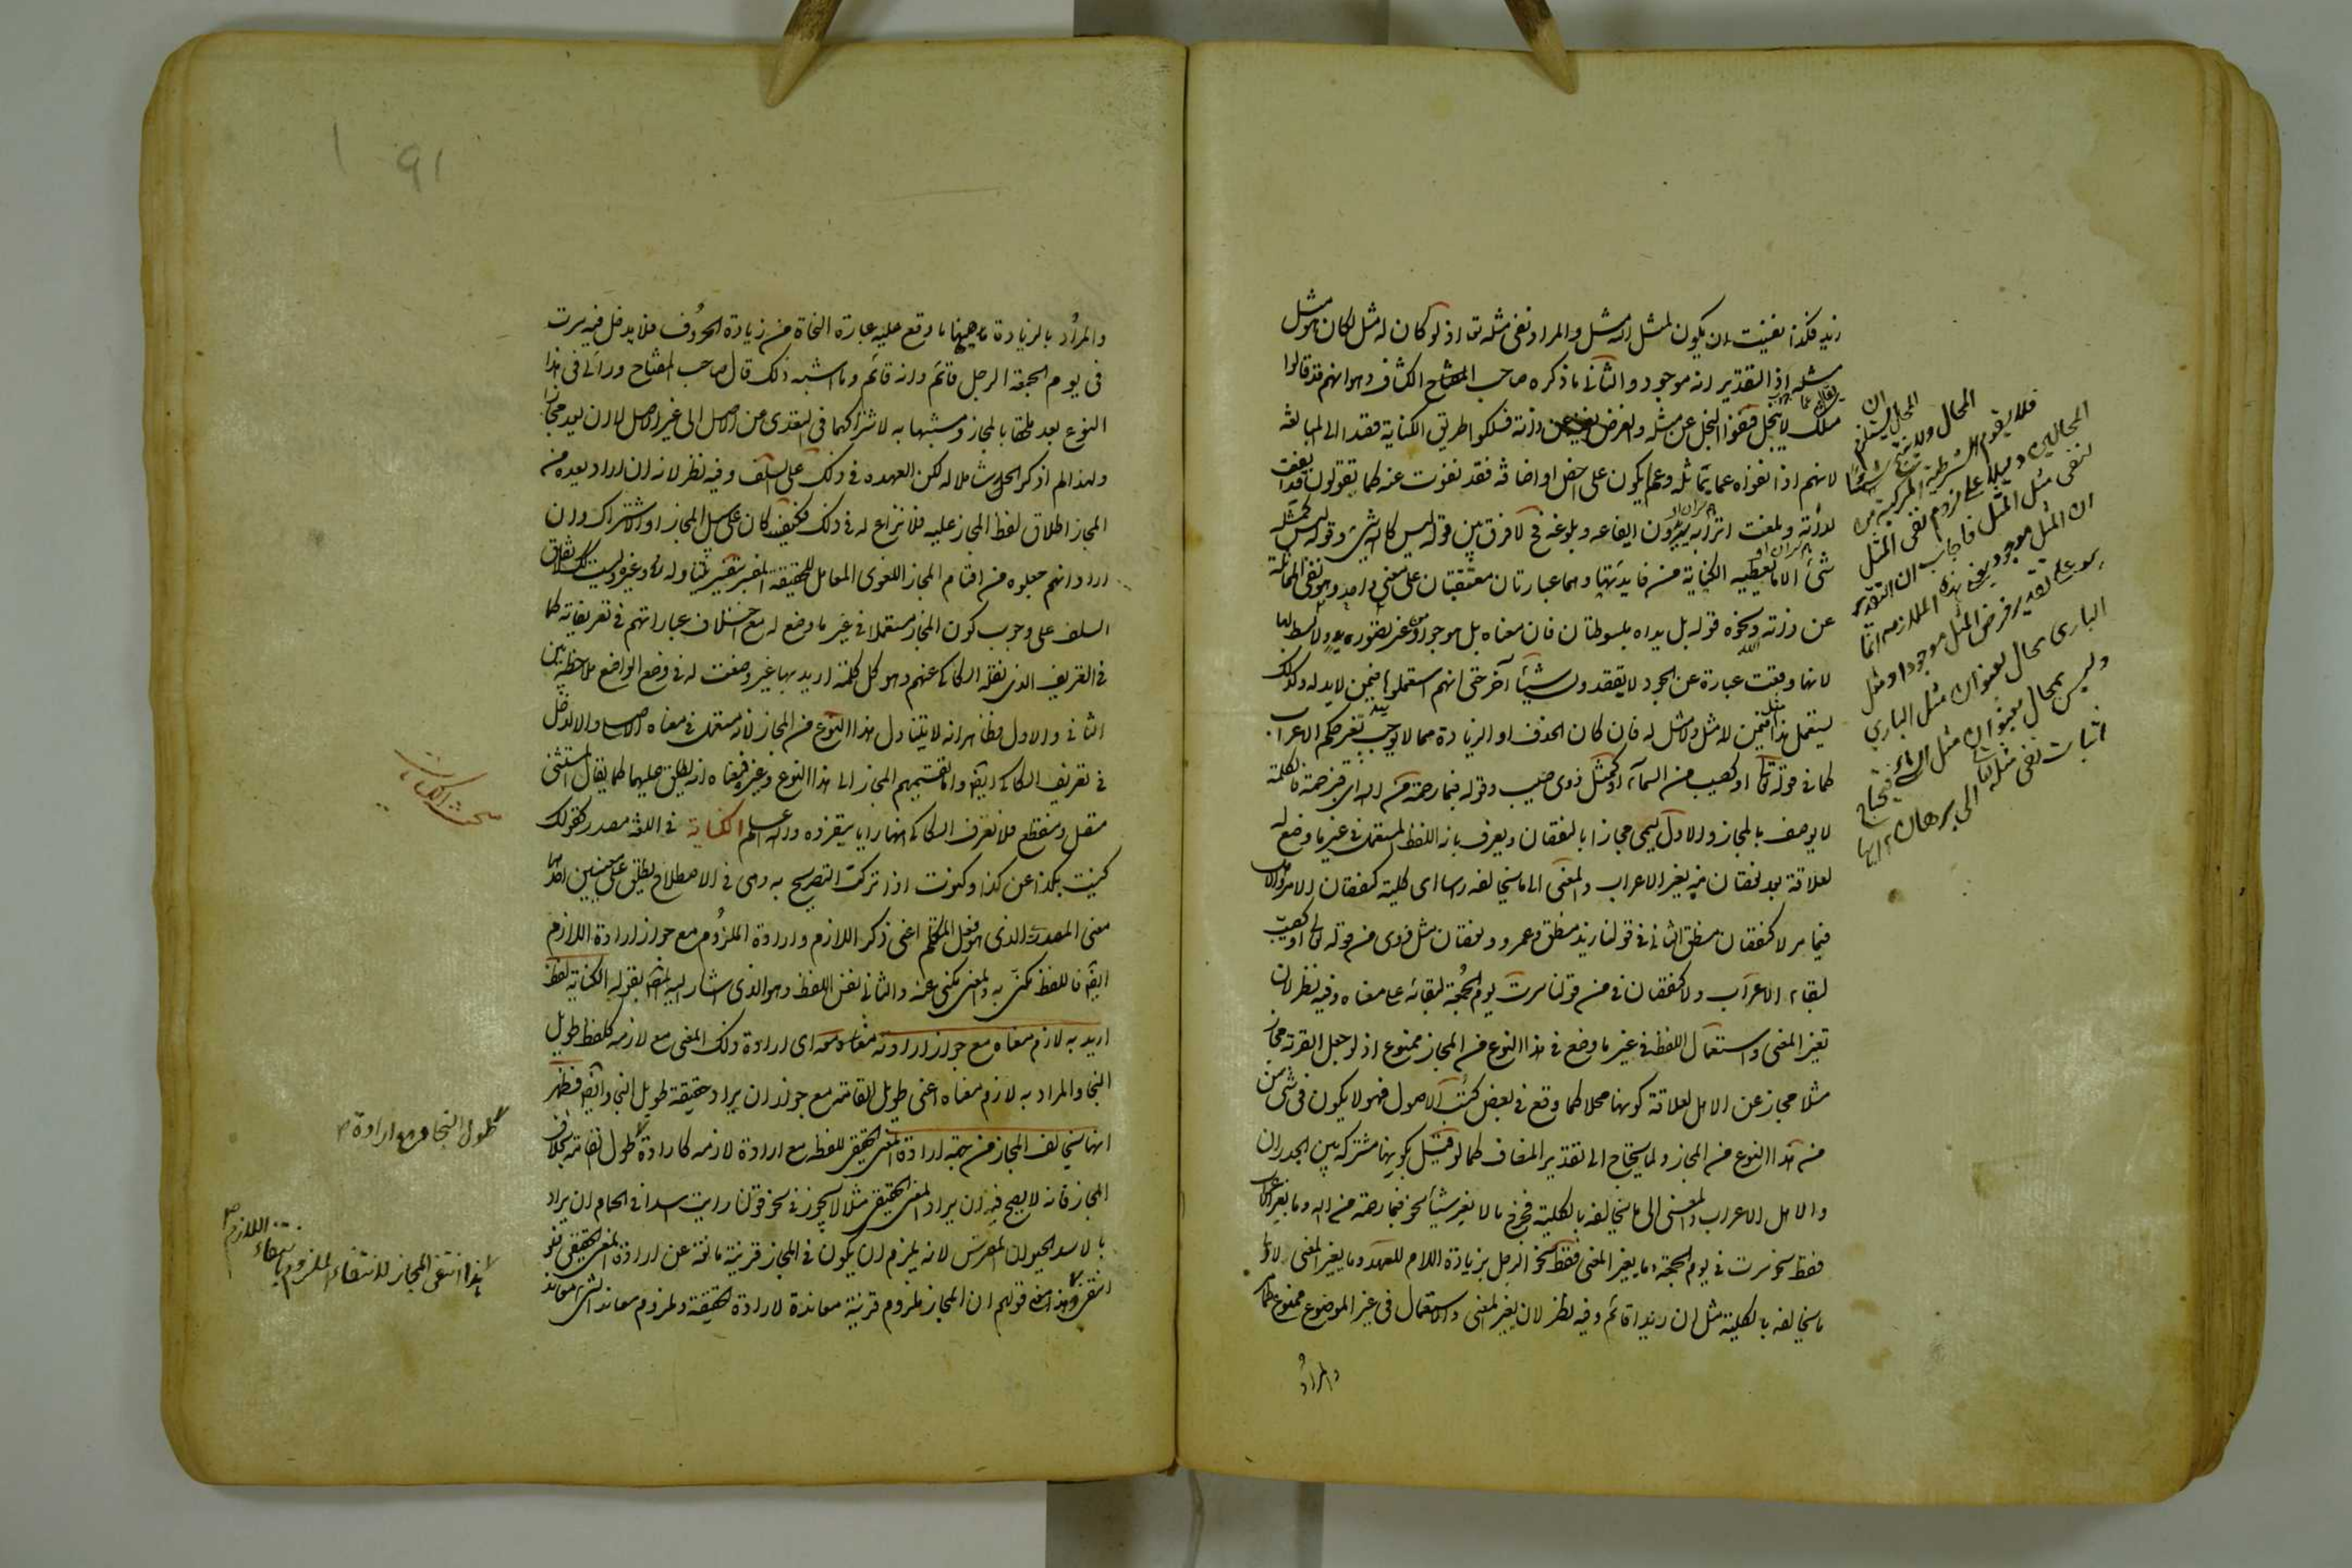 زيد فكذا نفيت ان يكون لمثل الله مثل والمراد نفى مثله تعالى اذ لو كان له مثل لكان هو مثل
مثله اذ التقدير انه موجود والثانى ما ذكره صاحب الكشاف وهو انهم قد قالوا
مثلك لا يبخل فنفوا البخل عن مثله والغرض نفيه عن ذاته فسلكوا طريق الكناية قصدا الى المبالغة
لانهم اذا نفوه عما يماثله وعمن يكون على اخص اوصافه فقد نفوه عنه كما يقولون قد ايفعت
لداته وبلغت اترابه يريدون ايفاعه وبلوغه فح لا فرق بين قوله ليس كالله شئ وقوله ليس كمثله
شئ الا ما تعطيه الكناية من فائدتها وهما عبارتان معتقبتان على معنى واحد وهو نفى المماثلة
عن ذاته ونحوه قوله بل يداه مبسوطتان فان معناه بل هو جواد من غير تصور يد ولا بسط لها
لانها وقعت عبارة عن الجود لا يقصدون شيئا آخر حتى انهم استعملوها فيمن لا يد له وكذلك
يستعمل هذا فيمن له مثل ومن لا مثل له فان كان الحذف او الزيادة مما لا يوجب تغير حكم الاعراب
كما فى قوله تعالى او كصيب من السماء او كمثل ذوى صيب وقوله فبما رحمة من الله اى فبرحمة فالكلمة
لا توصف بالمجاز والاول يسمى مجازا بالنقصان ويعرف بانه اللفظ المستعمل فى غير ما وضع له
لعلاقة بعد نقصان منه يغير الاعراب والمعنى الى ما يخالفه راسا اى كلية كنقصان الامر والاهل
فيما مر لا كنقصان منطلق الثانى فى قولنا زيد منطلق وعمرو ونقصان مثل ذوى من قوله تعالى او كصيب
لبقاء الاعراب ولا كنقصان فى من قولنا سرت يوم الجمعة لبقائه على معناه وفيه نظر لان
تغير المعنى واستعمال اللفظ فى غير ما وضع فى هذا النوع من المجاز ممنوع اذ لو جعل القرية مجازا
مثلا مجاز عن الاهل لعلاقة كونها محلا كما وقع فى بعض كتب الاصول فهو لا يكون فى شئ من
من هذا النوع من المجاز ولما يحتاج الى تقدير المضاف كما لو قيل بكونها مشتركة بين الجدران
والاهل الاعراب والمعنى الى ما يخالفه بالكلية فخرج ما لا يغير شيئا نحو فبما رحمة من الله وما يغير الاعراب
فقط نحو سرت فى يوم الجمعة وما يغير المعنى فقط نحو الرجل بزيادة اللام للعهد وما يغير المعنى لا الى
ما يخالفه بالكلية مثل ان زيدا قائم وفيه نظر لان تغير المعنى والاستعمال فى غير الموضوع ممنوع كما مر
والمراد
المحال يستلزم
المحال
فلا يقوم الشرطية المركبة من
المحالين دليلا على لزوم نفى المثل
لنفى مثل المثل فاجاب ان التقدير
ان المثل موجود يعنى هذه الملازمة انما
هو على تقدير فرض المثل موجودا ومثل
البارى محال بعنوان مثل البارى
وليس بمحال بعنوان مثل الشئ فيحتاج
اثبات نفى مثله تعالى الى برهان
والمراد بالزيادة ههنا ما وقع عليه عبارة النحاة من زيادة الحروف فلا يدخل فيه سرت
فى يوم الجمعة الرجل قائم وانه قائم وما اشبه ذلك قال صاحب المفتاح ورأيى فى هذا
النوع يعد ملحقا بالمجاز ومشبها به لاشتراكهما فى التعدى من الاصل الى غير الاصل لا ان يعد مجازا
ولهذا لم اذكر الحد شاملا له لكن العهدة فى ذلك على السلف وفيه نظر لانه ان اراد بعده من
المجاز اطلاق لفظ المجاز عليه فلا نزاع له فى ذلك فكيف كان على سبيل المجاز او الاشتراك وان
اراد انهم جعلوه من اقسام المجاز اللغوى المقابل للحقيقة المفسر بتفسير يتناوله وغيره فليس كذلك لاتفاق
السلف على وجوب كون المجاز مستعملا فى غير ما وضع له مع اختلاف عباراتهم فى تعريفاته كما
فى التعريف الذى نقله السكاكى عنهم وهو كل كلمة اريد بها غير ما وضعت له فى وضع الواضع لملاحظة بين
الثانى والاول فظاهر انه لا يتناول هذا النوع من المجاز لانه مستعمل فى معناه الاصلى والا لدخل
فى تعريف السكاكى ايضا واما تقسيمهم المجاز الى هذا النوع وغيره فمعناه انه يطلق عليهما كما يقال المستثنى
متصل ومنقطع فلا نعرف السكاكى ههنا رايا يتفرد به والله اعلم الكناية فى اللغة مصدر كقولك
كنيت بكذا عن كذا وكنوت اذا تركت التصريح به وهى فى الاصطلاح يطلق على معنيين احدهما
معنى المصدر الذى هو فعل المتكلم اعنى ذكر اللازم وارادة الملزوم مع جواز ارادة اللازم
ايضا فاللفظ مكنى به والمعنى مكنى عنه والثانى نفس اللفظ وهو الذى اشار اليه المص بقوله الكناية لفظ
اريد به لازم معناه مع جواز ارادته معه اى ارادة ذلك المعنى مع لازمه كلفظ طويل
النجاد والمراد به لازم معناه اعنى طويل القامة مع جواز ان يراد حقيقة طويل النجاد ايضا فظهر
انها يخالف المجاز من جهة ارادة المعنى الحقيقى للفظ مع ارادة لازمه كارادة طول القامة بخلاف
المجاز فانه لا يصح فيه ان يراد المعنى الحقيقى مثلا لا يجوز فى نحو قولنا رايت اسدا فى الحمام ان يراد
بالاسد الحيوان المفترس لانه يلزم ان يكون فى المجاز قرينة مانعة عن ارادة المعنى الحقيقى فلو
انتفى هذا انتفى قولهم ان المجاز ملزوم قرينة معاندة لارادة الحقيقة وملزوم معاند الشئ معاند
مبحث الكناية
طول النجاد مع ارادة
هذا انتفى المجاز لانتفاء الملزوم بانتفاء اللازم
91